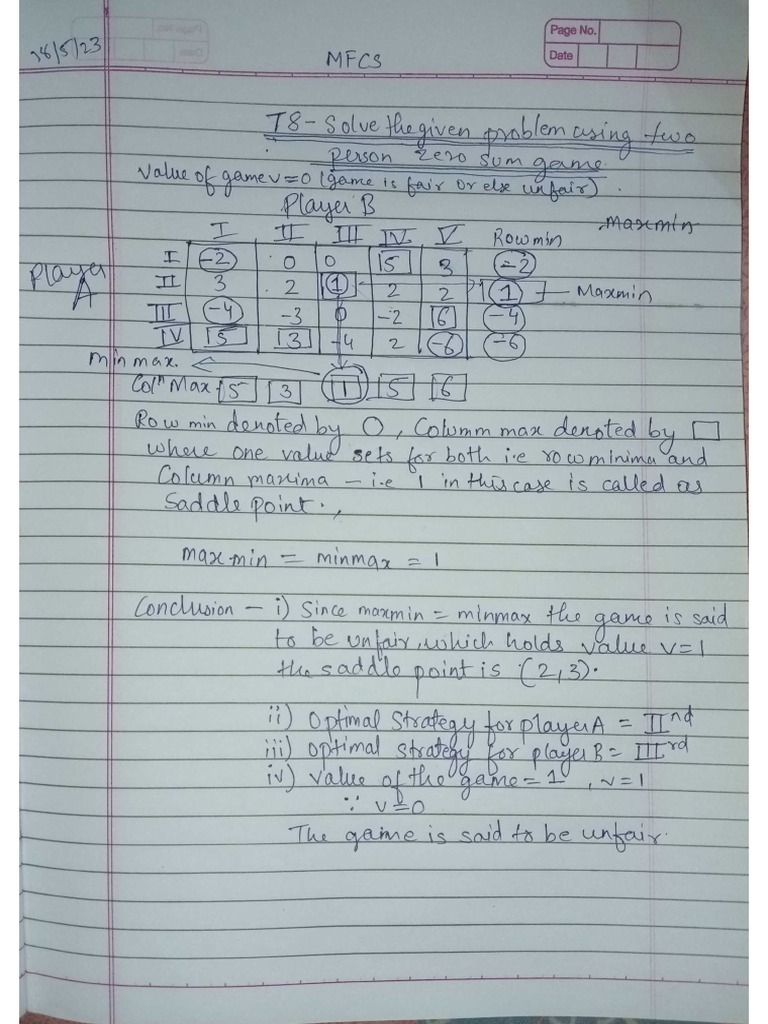 Page No.
Date
18/5/23
MFCS
T8 - Solve the given problem using two
person zero sum game.
Value of game v=0 (game is fair or else unfair).
Player B
I II III IV V Row min Maxmin
Player A
I -2 0 0 5 3 -2
II 3 2 1 2 2 1 - Maxmin
III -4 -3 0 -2 6 -4
IV 5 3 -4 2 -6 -6
Minmax.
Colⁿ Max 5 3 1 5 6
Row min denoted by O, Columm max denoted by □
where one value sets for both i.e row minima and
Column maxima - i.e 1 in this case is called as
Saddle point.,
max-min = minmax = 1
Conclusion - i) Since maxmin = minmax the game is said
to be unfair, which holds value v=1
the saddle point is (2,3).
ii) Optimal Strategy for player A = IInd
iii) optimal strategy for player B = IIIrd
iv) value of the game = 1, v=1
∵ v≠0
The game is said to be unfair.